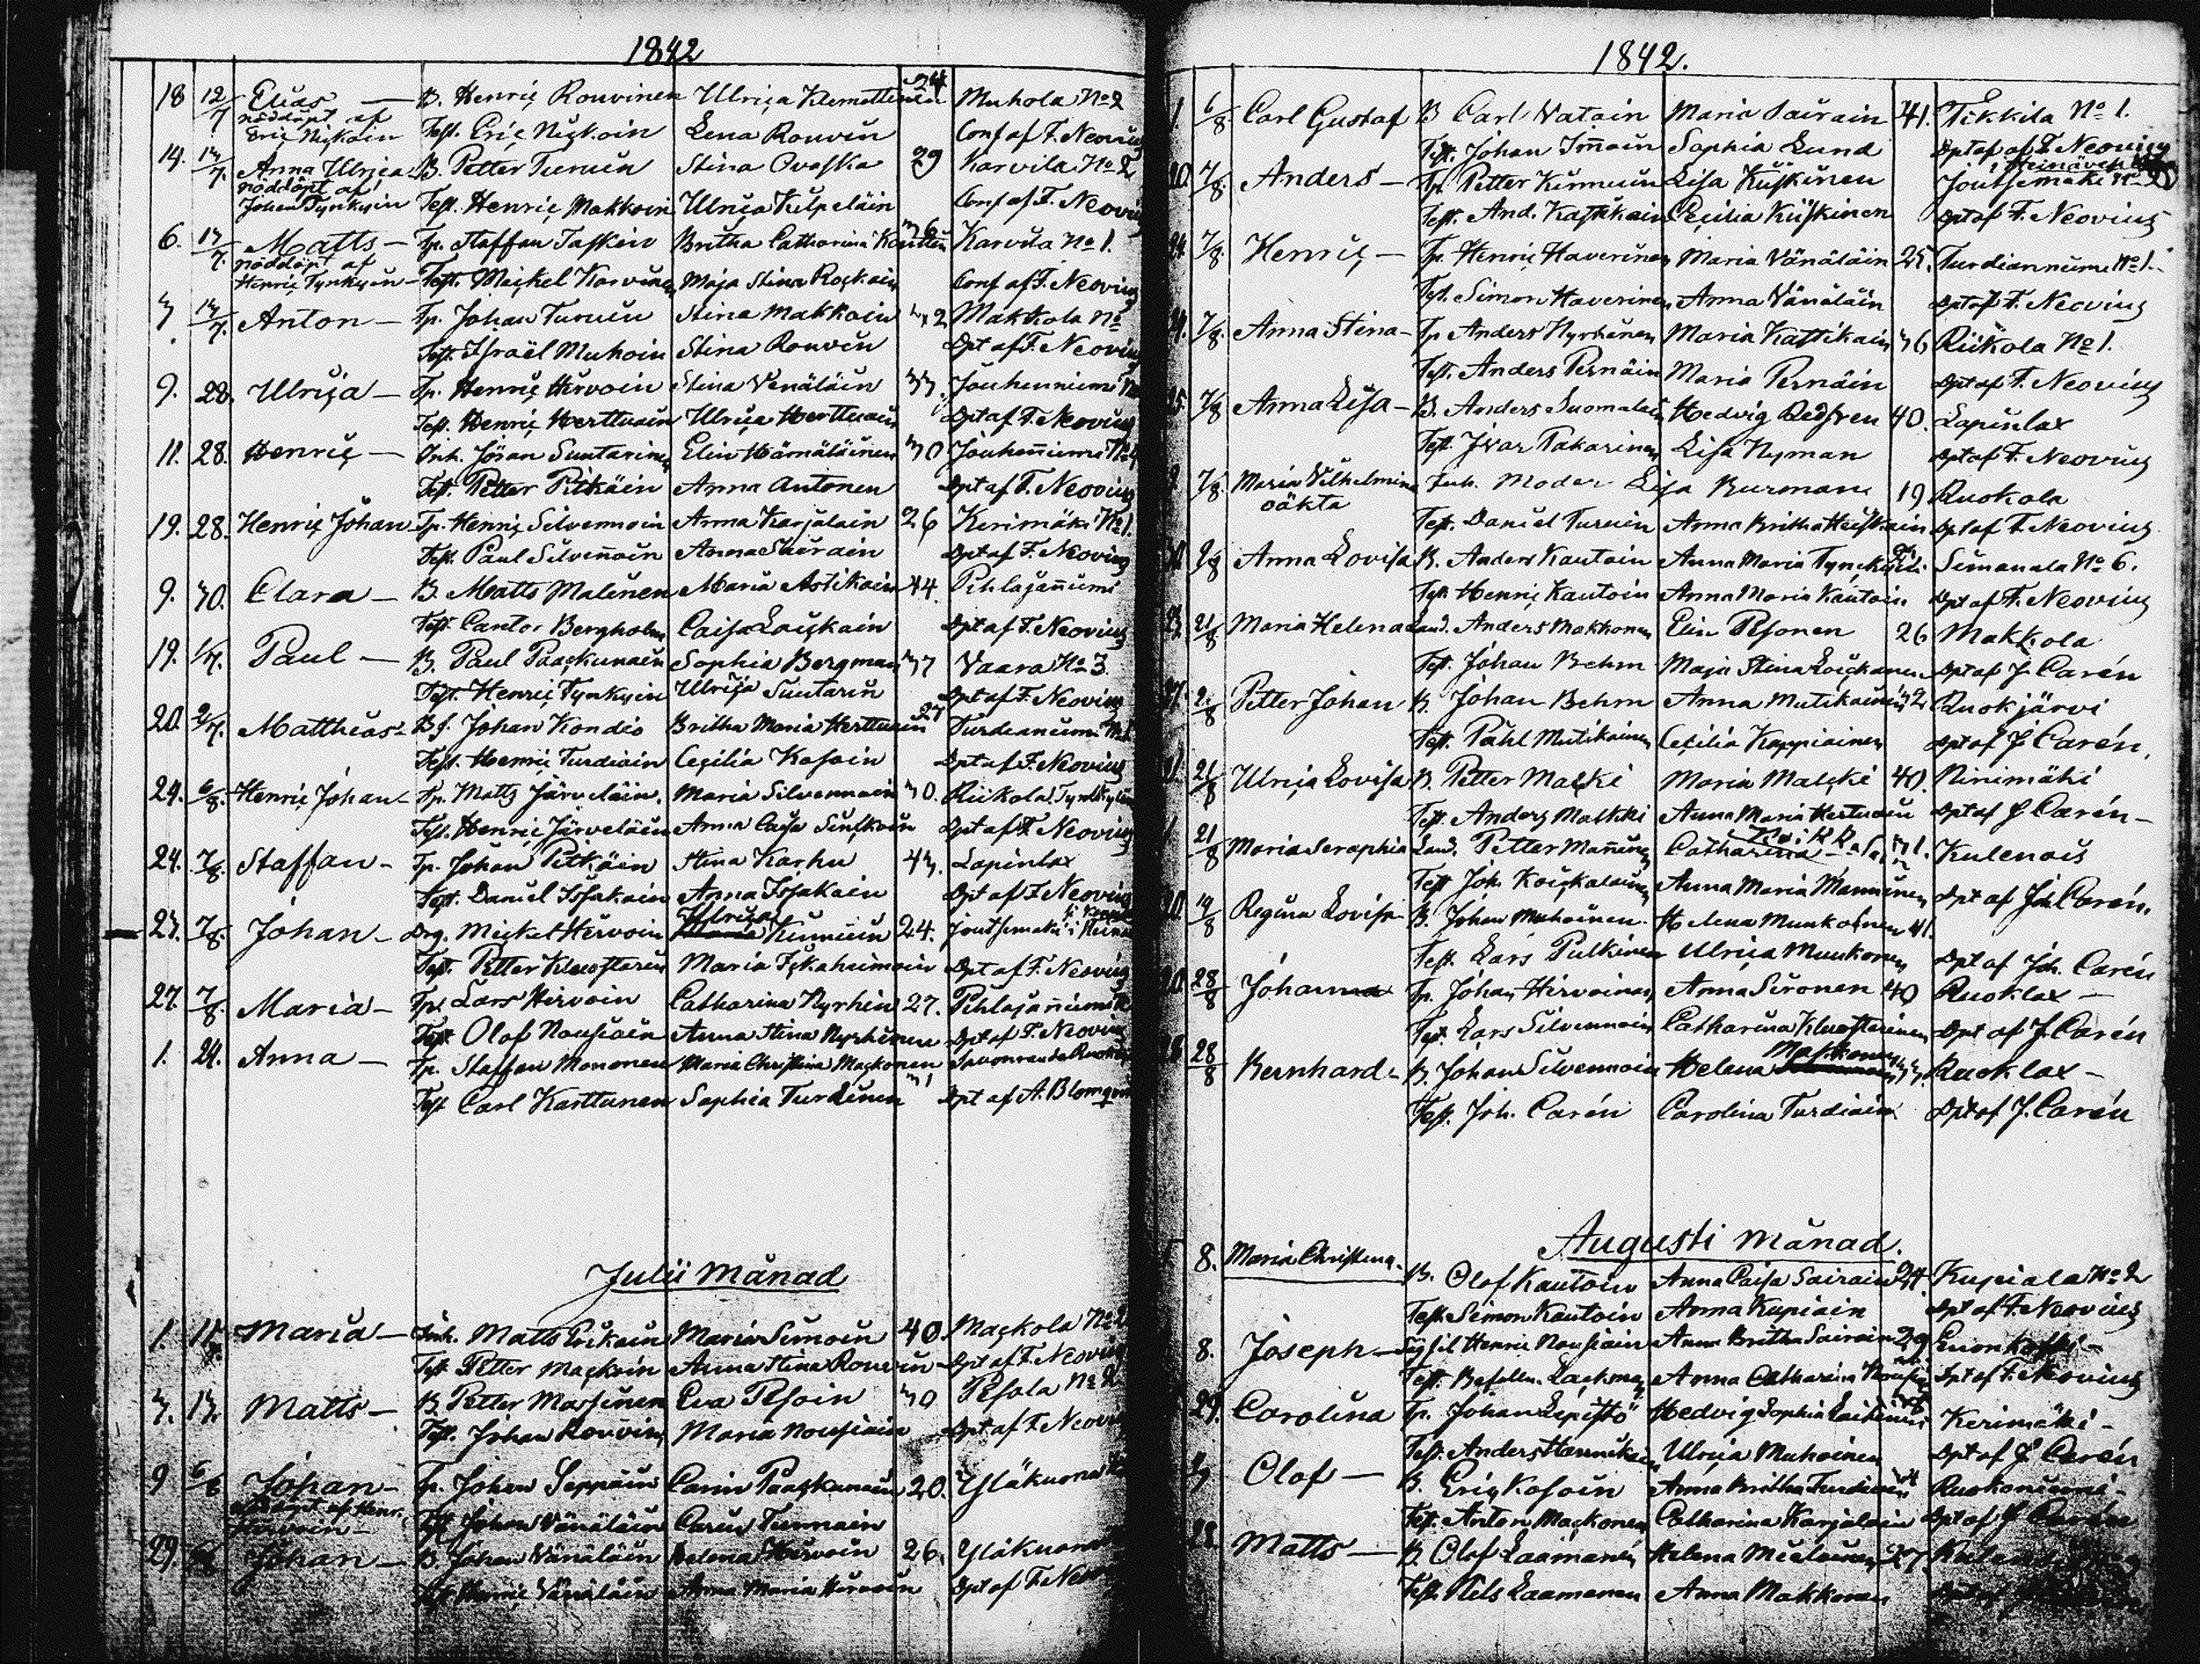 1842
18 12/7 Elias — B. Henriç Rouvinen Ulriça Klemettinen 24 Muhola No 2
nöddöpt af
Eriç Niçkoin Test. Eriç Niçkoin Lena Rouvin Conf af F. Neovius
14. 13/7. Anna Ulriça B. Petter Turuin Stina Ovaska 29 Karvila No 2
nöddöpt af
Johan Tynkyin Test. Henriç Makkoin Ulriça Kulpeläin Conf af F. Neovius
6. 13/7. Matts — Tp. Staffan Taskin Britha Catharina 36 Karvila No 1.
nöddöpt af
Henriç Tynkyin — Test. Meiçkel Karvinen Maja Stina Roçkain Conf af F. Neovius
3 13/7. Anton — Tp. Johan Turuin Stina Makkoin 32 Makkola No
Test. Israël Muhoin Stina Rouvin Dpt af F. Neovius
9. 28. Ulriça — Tp. Henriç Hirvoin Stina Venäläin 33. Jouhenniemi
Test. Henriç Herttuain Ulriça Herttuain Dpt af F. Neovius
11. 28. Henriç — Inh. Jöran Suntarinen Elin Hämäläinen 30 Jouhenniemi No 4
Test. Petter Pitkäin Anna Antonen Dpt af F. Neovius
19. 28. Henriç Johan Tp. Henriç Silvennoin Anna Karjalain 26 Kerimäki No 1.
Test. Paul Silvennoin Anna Sairain Dpt af F. Neovius
9. 30. Clara — B. Matts Malinen Maria Astikain 44. Pihlajanniemi
Test. Cantor Bergholm Caisa Loiçkain Dpt af F. Neovius
19. 1/7. Paul — B. Paul Paaçkunain Sophia Bergman 37 Vaara No 3.
Test. Henriç Tynkyin Ulriça Suntarin Dpt af F. Neovius
20. 2/7. Matthias — Bs. Johan Kondio Britha Maria Herttuain 27 Turdianiemi
Test. Henriç Turdiain Ceçilia Kosoin Dpt af F. Neovius
24. 6/8. Henriç Johan — Tp. Matts Järveläin. Maria Silvennoin 30. Riikola
Test. Henriç Järveläin Anna Caisa Dpt af F. Neovius
24. 7/8. Staffan — Tp. Johan Pitkäin Stina Karhu 43. Lapinlax
Test. Daniel Issakain Anna Issakain Dpt af F. Neovius
23. 7/8. Johan — Drg. Meiçkel Hirvoin Ulriça Kinnuin 24. Joutsemäki i
Test. Petter Klaustarin Maria Dpt af F. Neovius
27. 7/8. Maria — Tp. Lars Hirvoin Catharina Nyrhin 27. Pihlajanniemi
Test. Olof Nousiain Anna Stina Nyrhinen Dpt af F. Neovius
1. 24. Anna — Tp. Staffan Mononen Maria Christina Maçkonen 31 Savonranda
Test. Carl Karttunen Sophia Turdinen Dpt af A. Blomqvist
Julii Månad
1. 17. Maria — Inh. Matts Eriksain Maria Simoin 40. Maçkola No 2
Test. Petter Maçkoin Anna Stina Rouvin Dpt af F. Neovius
3. 13. Matts — B. Petter Massinen Eva Pesoin 30 Pesola No 2
Test. Johan Rouvin Maria Nousiain Dpt af F. Neovius
9 Johan — Tp. Johan Seppäin Carin Paaçkunain 20. Yläkuona
Test. Johan Vänäläin Carin Turunain
29. Johan — B. Johan Vänäläin Helena Hirvoin 26. Yläkuona
Test. Henriç Vänäläin Anna Maria Hirvoin Dpt af F. Neovius
1842.
1. 6/8. Carl Gustaf B Carl Natain Maria Sairain 41. Tikkila No 1.
Test. Johan Immoin Sophia Lund Dpt af F. Neovius
20. 7/8. Anders — Tp. Petter Kinnuin Lisa Kiiskinen Joutsemäki i Heinävesi
Test. And. Kaskikain Ceçilia Kiiskinen Dpt af F. Neovius
24. 7/8. Henriç — Tp. Henriç Haverinen Maria Vänäläin 25. Turdianniemi No 1.
Test. Simon Haverinen Anna Vänäläin Dpt af F. Neovius
24. 7/8. Anna Stina — Tp Anders Nyrhinen Maria Kattikain 36 Riikola No 1.
Test. Anders Pernäin Maria Pernäin Dpt af F. Neovius
25. 7/8 Anna Lisa — B. Anders Suomalain Hedvig Redsven 40. Lapinlax
Test. Ivar Pakarinen Lisa Nyman Dpt af F. Neovius
7/8. Maria Vilhelmina Inh. Moder Lisa Burman 19 Ruokola
oäkta
Test. Daniel Turuin Anna Britha Heiskain Dpt af F. Neovius
9/8 Anna Lovisa B. Anders Kautoin Anna Maria Tynckyin Simanala No 6.
Test. Henriç Kautoin Anna Maria Kautoin Dpt af F. Neovius
21/8 Maria Helena Land. Anders Makkonen Elin Pesonen 26 Makkola
Test. Johan Behm Maja Stina Loiçkanen Dpt af J Carén
21/8 Petter Johan B. Johan Behm Anna Mutikainen 32 Ruokjärvi
Test. Påhl Mutikainen Ceçilia Kappiainen Dpt af J. Carén,
21/8 Ulriça Lovisa B. Petter Malçki Maria Malçki 40. Ninimäki
Test. Anders Malkki Anna Maria Herttuain Dpt af J Carén —
21/8 Maria Seraphia Land. Petter Manninen Catharina 31. Kulenois
Test Joh. Koiçkalainen Anna Maria Manninen Dpt af Joh. Carén.
20. 14/8 Regina Lovisa B. Johan Muhoinen. Helena Munkonen 41.
Test. Lars Pulkinen Ulriça Munkonen Dpt af Joh. Carén
20. 28/8 Johan Tp. Johan Hirvoinen Anna Sironen 40 Ruoklax —
Test. Lars Silvennoin Catharina Klaustarinen Dpt af J. Carén
28/8 Bernhard — B. Johan Silvennoin Helena Makkonen 33. Ruoklax —
Test. Joh. Carén Carolina Turdiain Dpt af J. Carén
Augusti Månad.
8. Maria Christina. B. Olof Kautoin Anna Caisa Sairain 24. Kupiala No 2
Test. Simon Kautoin Anna Kupiain Dpt af F. Neovius
8. Joseph — Henriç Nousiain Anna Britha Sairain 29 Enonkoski —
Test. Befallm. Laçkman Anna Catharina Dpt af F. Neovius
29. Carolina Tp. Johan Lepistö Hedvig Sophia Laitinen Kerimäki —
Test. Anders Hannikain Ulriça Muhoinen Dpt af J Carén
Olof — B. Eriç Kosoin Anna Britha Turdiain Ruokoniemi —
Test. Anton Maçkonen Catharina Karjalain Dpt af J Carén
28. Matts — B. Olof Laamanen Helena 27.
Test. Nils Laamanen Anna Makkonen